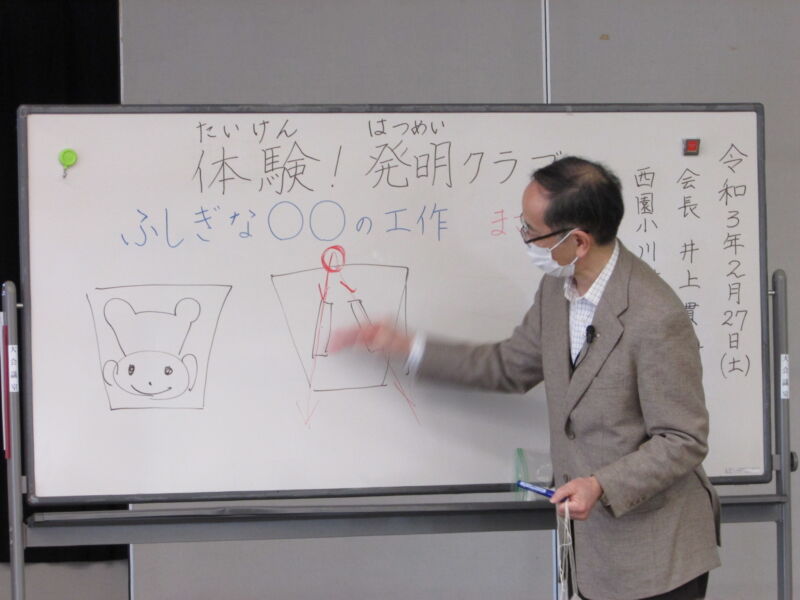 たいけん はつめい
体験！発明クラブ
ふしぎな〇〇の工作 ま
令和3年2月27日(土)
会長 井上 貫
西園小川
大会議室
大会議室